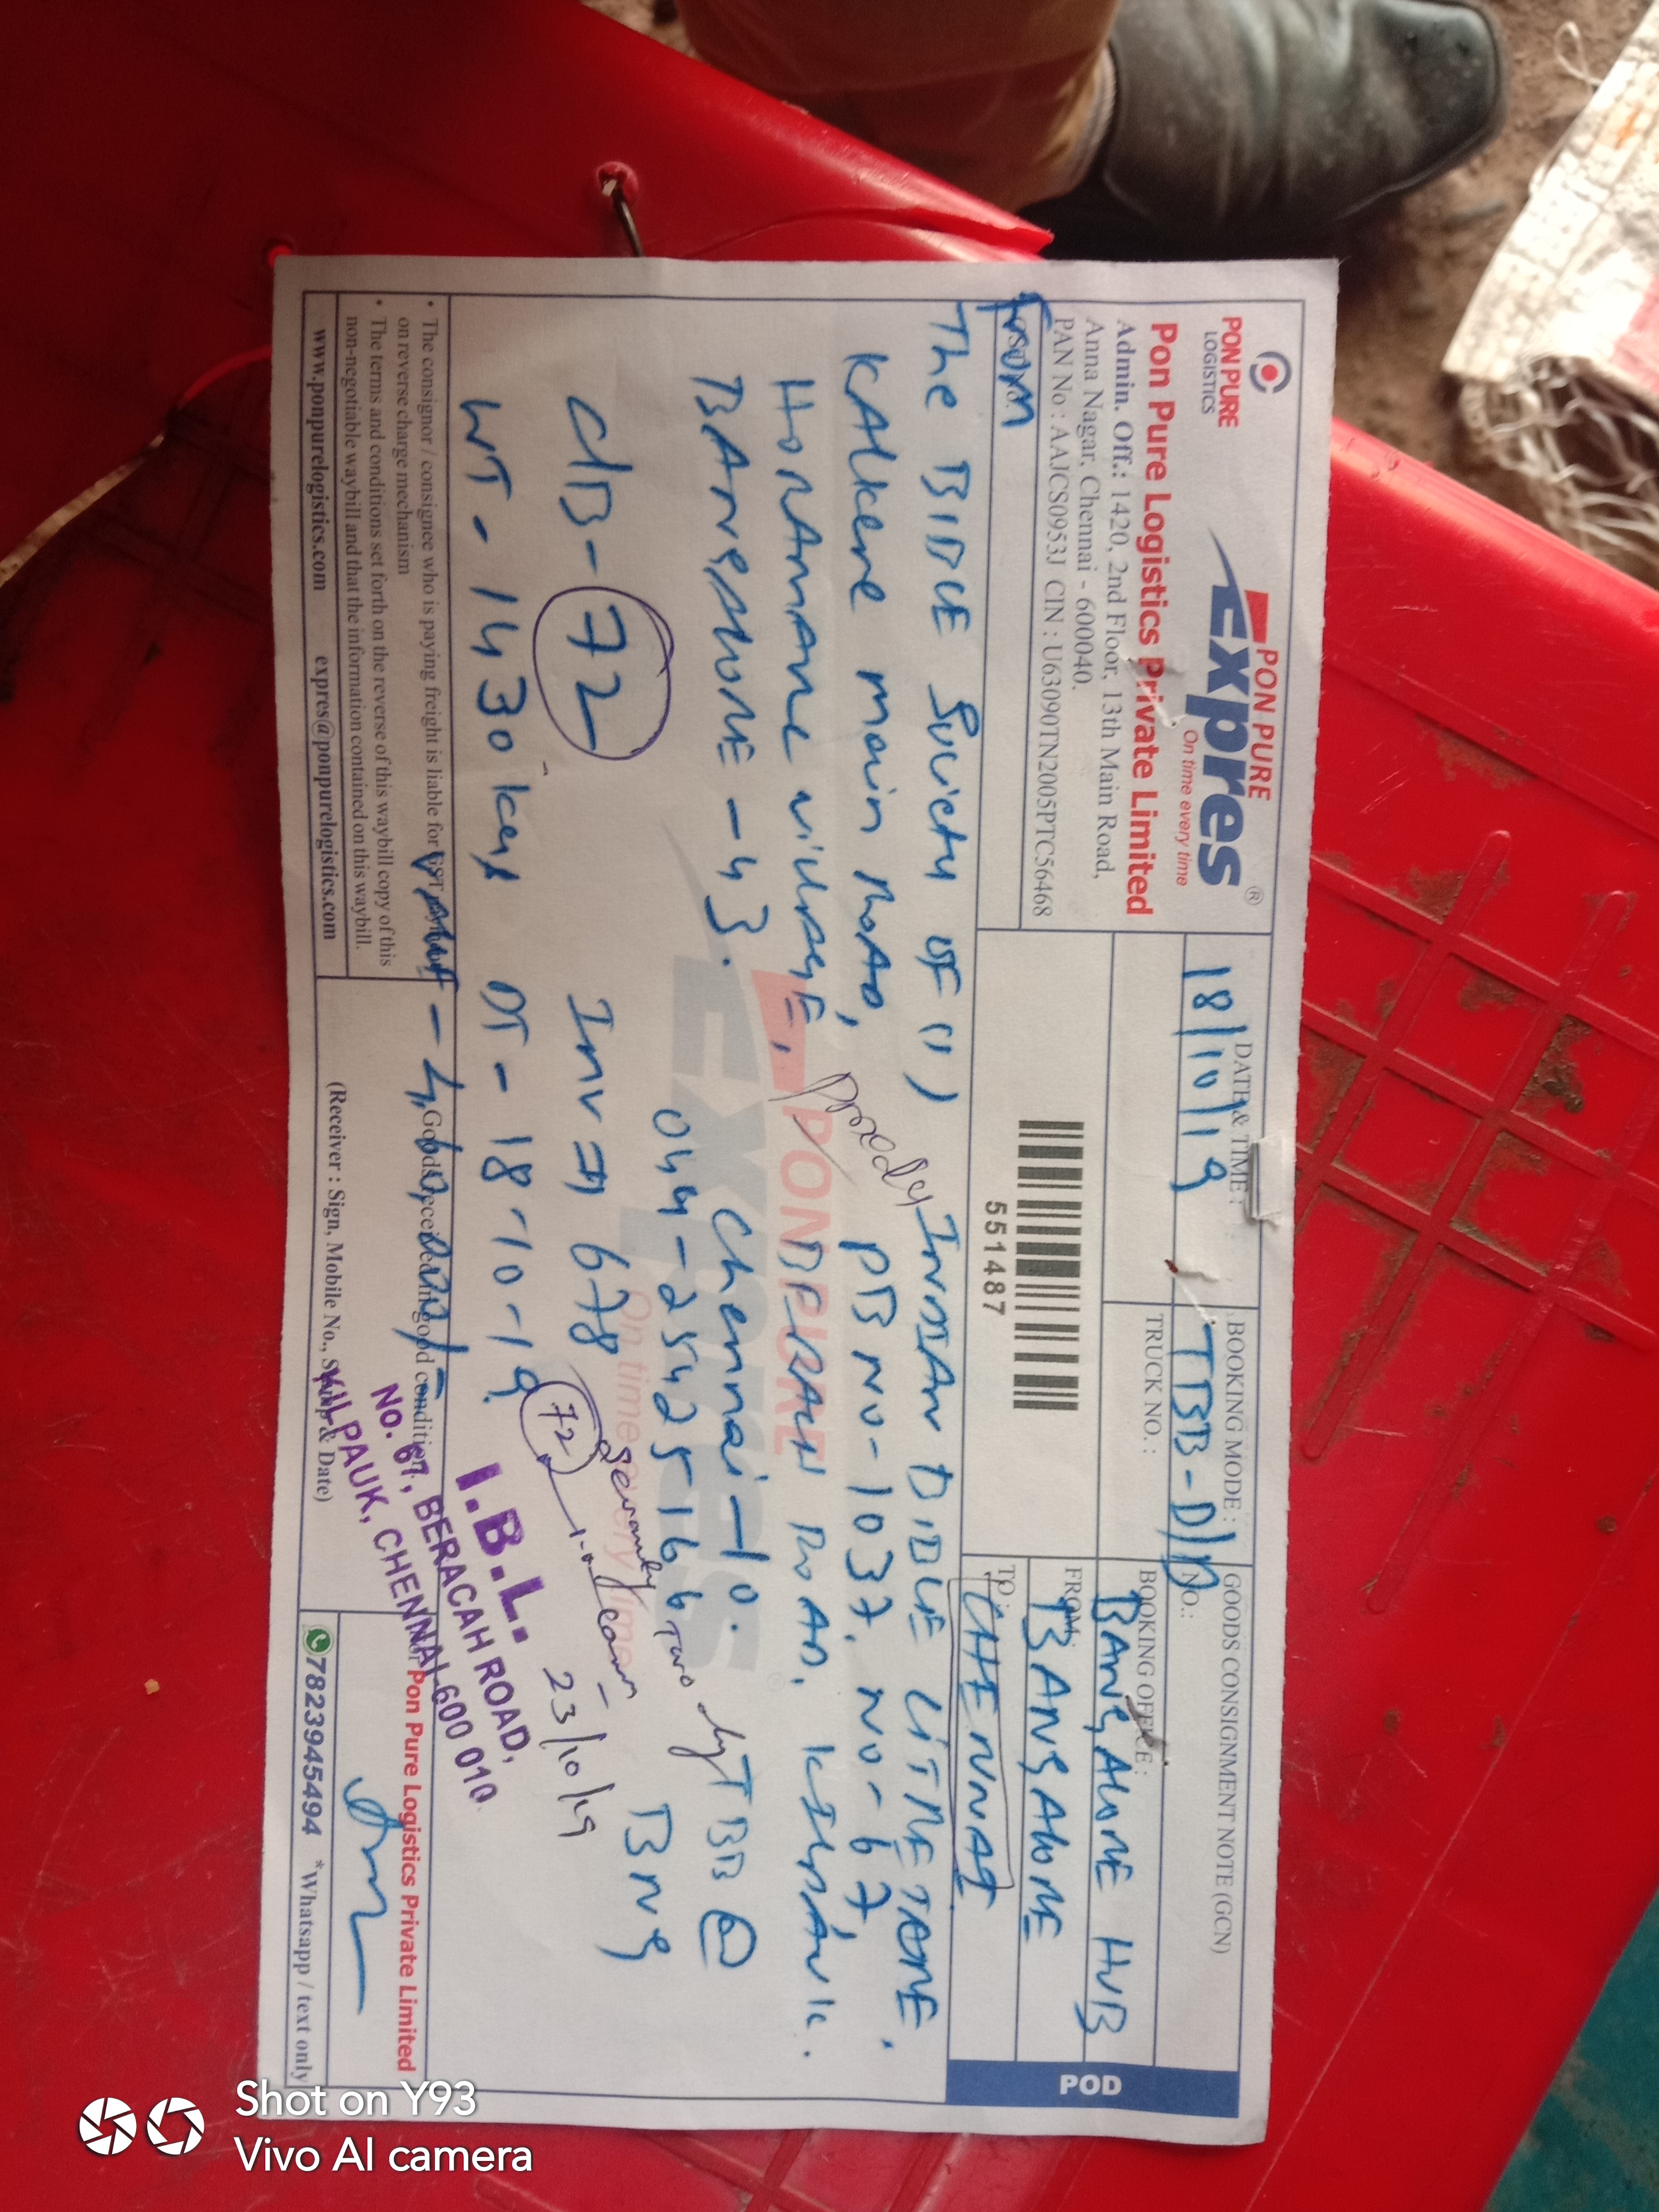 PON PURE
LOGISTICS
PON PURE
Expres®
On time every time
Pon Pure Logistics Private Limited
Admin. Off.: 1420, 2nd Floor, 13th Main Road,
Anna Nagar, Chennai - 600040.
PAN No : AAJCS0953J CIN : U63090TN2005PTC56468
DATE & TIME :
18/10/19
BOOKING MODE :
TBB-D/D
TRUCK NO. :
GOODS CONSIGNMENT NOTE (GCN)
NO.:
BOOKING OFFICE :
BANGALORE HUB
FROM:
BANGALORE
TO :
CHENNAI
551487
POD
From
The BIBLE Society OF (I)
KAlkere main ROAD,
HORAMANE VILLAGE,
BANGALORE - 43.
INDIAN BIBLE LITRETARE,
PB NO - 1037, NO - 67,
BERACH ROAD, KILPAUK.
Chennai - 10.
044 - 25425166
TBB @
BNG
C/B - 72
Inv # 678
WT - 1430 kgs
DT - 18-10-19
72
23/10/19
I.B.L.
NO. 67, BERACAH ROAD,
KILPAUK, CHENNAI-600 010.
PON PURE
Expres
On time every time
• The consignor / consignee who is paying freight is liable for GST
on reverse charge mechanism
• The terms and conditions set forth on the reverse of this waybill copy of this
non-negotiable waybill and that the information contained on this waybill.
www.ponpurelogistics.com expres@ponpurelogistics.com
Goods received in good condition
(Receiver : Sign, Mobile No., Stamp & Date)
for Pon Pure Logistics Private Limited
7823945494 *Whatsapp / text only
Shot on Y93
Vivo AI camera